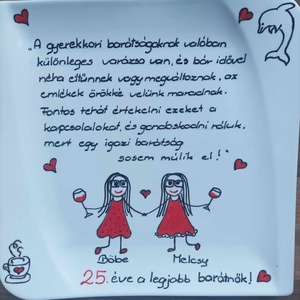 „A gyerekkori barátságoknak valóban
különleges varázsa van, és bár idővel
néha eltűnnek vagy megváltoznak, az
emlékek örökké velünk maradnak.
Fontos tehát értékelni ezeket a
kapcsolatokat, és gondoskodni róluk,
mert egy igazi barátság
sosem múlik el!"
Böbe Melcsy
25. éve a legjobb barátnők!